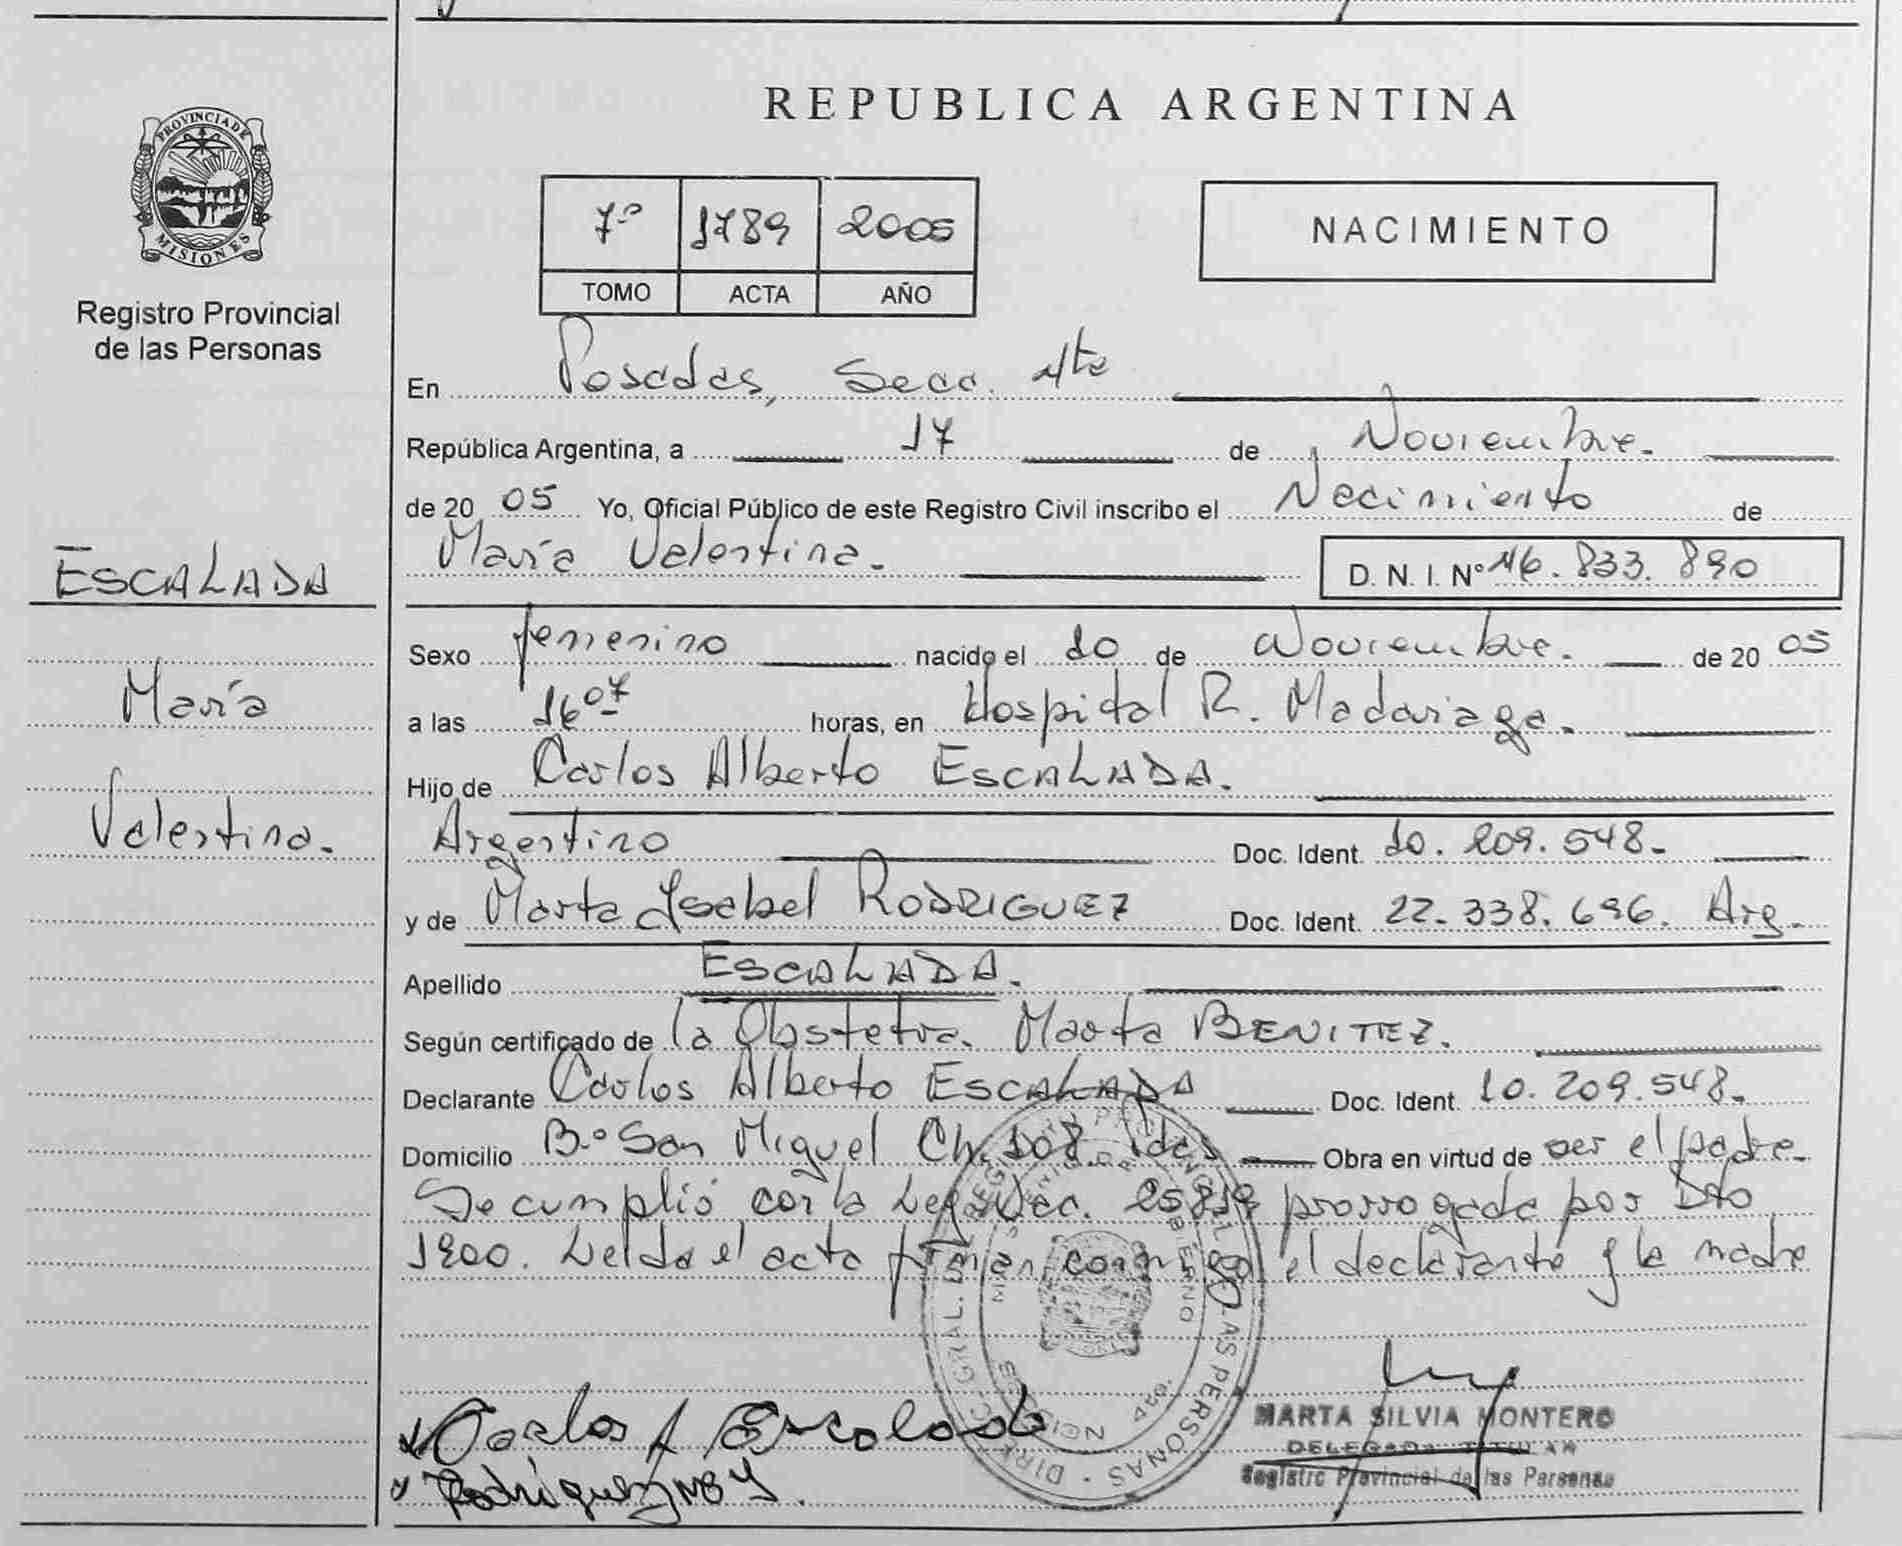 PROVINCIA DE
MISIONES
Registro Provincial
de las Personas
ESCALADA
María
Valentina.
REPUBLICA ARGENTINA
7º 1789 2005
TOMO ACTA AÑO
NACIMIENTO
En Posadas, Secc. 4ta
República Argentina, a 17 de Noviembre.
de 20 05 Yo, Oficial Público de este Registro Civil inscribo el Nacimiento de
María Valentina. D. N. I. Nº 46.833.890
Sexo femenino nacido el 10 de Noviembre. de 20 05
a las 16 07 horas, en Hospital R. Madariaga.
Hijo de Carlos Alberto ESCALADA.
Argentino Doc. Ident. 10.209.548.
y de Marta Ysabel RODRIGUEZ Doc. Ident. 22.338.696. Arg.
Apellido ESCALADA.
Según certificado de la Obstetra. Marta BENITEZ.
Declarante Carlos Alberto ESCALADA Doc. Ident. 10.209.548.
Domicilio Bº San Miguel Ch. 108 Obra en virtud de ser el padre.
Se cumplió con la Ley Nac. 25819 prorrogada por Dto
1900. Leída el acta firman conmigo el declarante y la madre
Carlos A Escalada
Rodriguez M Y.
MARTA SILVIA MONTERO
DELEGADA TITULAR
Registro Provincial de las Personas